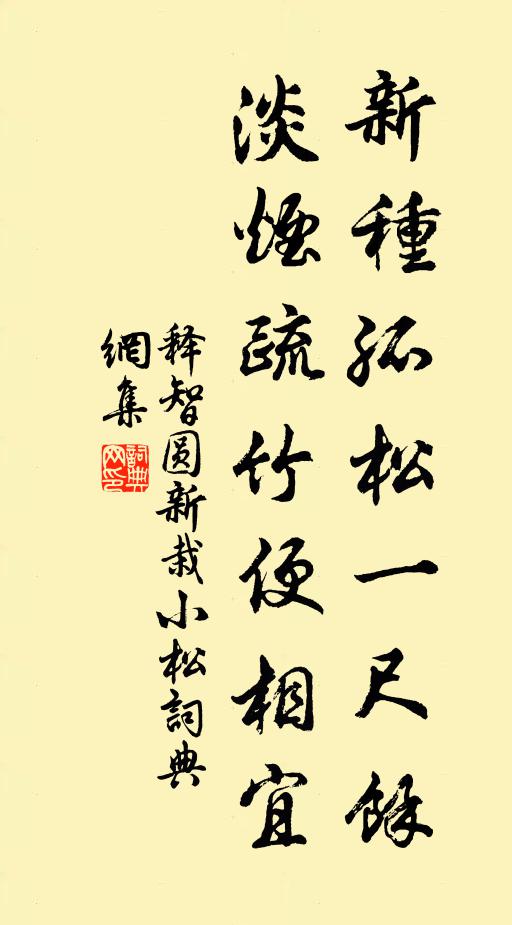 新種孤松一尺餘
淡煙疏竹便相宜
释智圆新栽小松詞典
網集
詞典網印